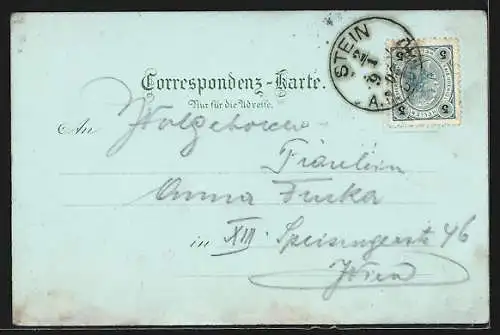 STEIN
Correspondenz-Karte.
Nur für die Adresse.
An Wolgeboren
Fräulein
Anna Fucka
in XIII Speisingerstr 46
Wien
5 5